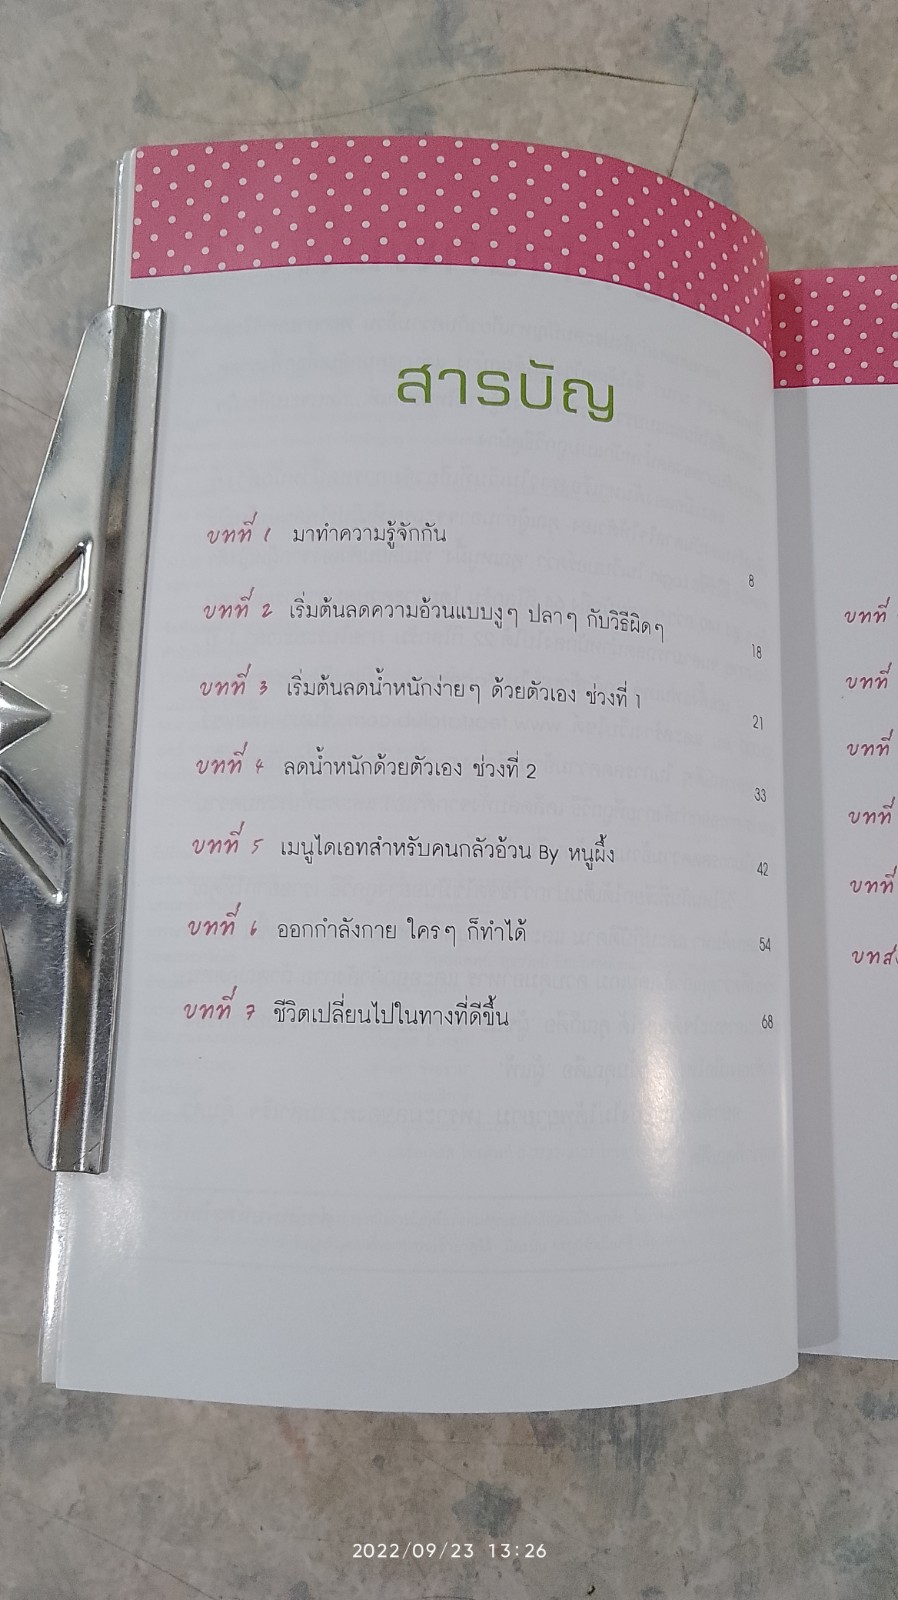 สารบัญ
บทที่ 1 มาทำความรู้จักกัน 8
บทที่ 2 เริ่มต้นลดความอ้วนแบบงูๆ ปลาๆ กับวิธีผิดๆ 18
บทที่ 3 เริ่มต้นลดน้ำหนักง่ายๆ ด้วยตัวเอง ช่วงที่ 1 21
บทที่ 4 ลดน้ำหนักด้วยตัวเอง ช่วงที่ 2 33
บทที่ 5 เมนูไดเอทสำหรับคนกลัวอ้วน By หนูผึ้ง 42
บทที่ 6 ออกกำลังกาย ใครๆ ก็ทำได้ 54
บทที่ 7 ชีวิตเปลี่ยนไปในทางที่ดีขึ้น 68
บทที่
บทที่
บทที่
บทที่
บทที่
2022/09/23 13:26